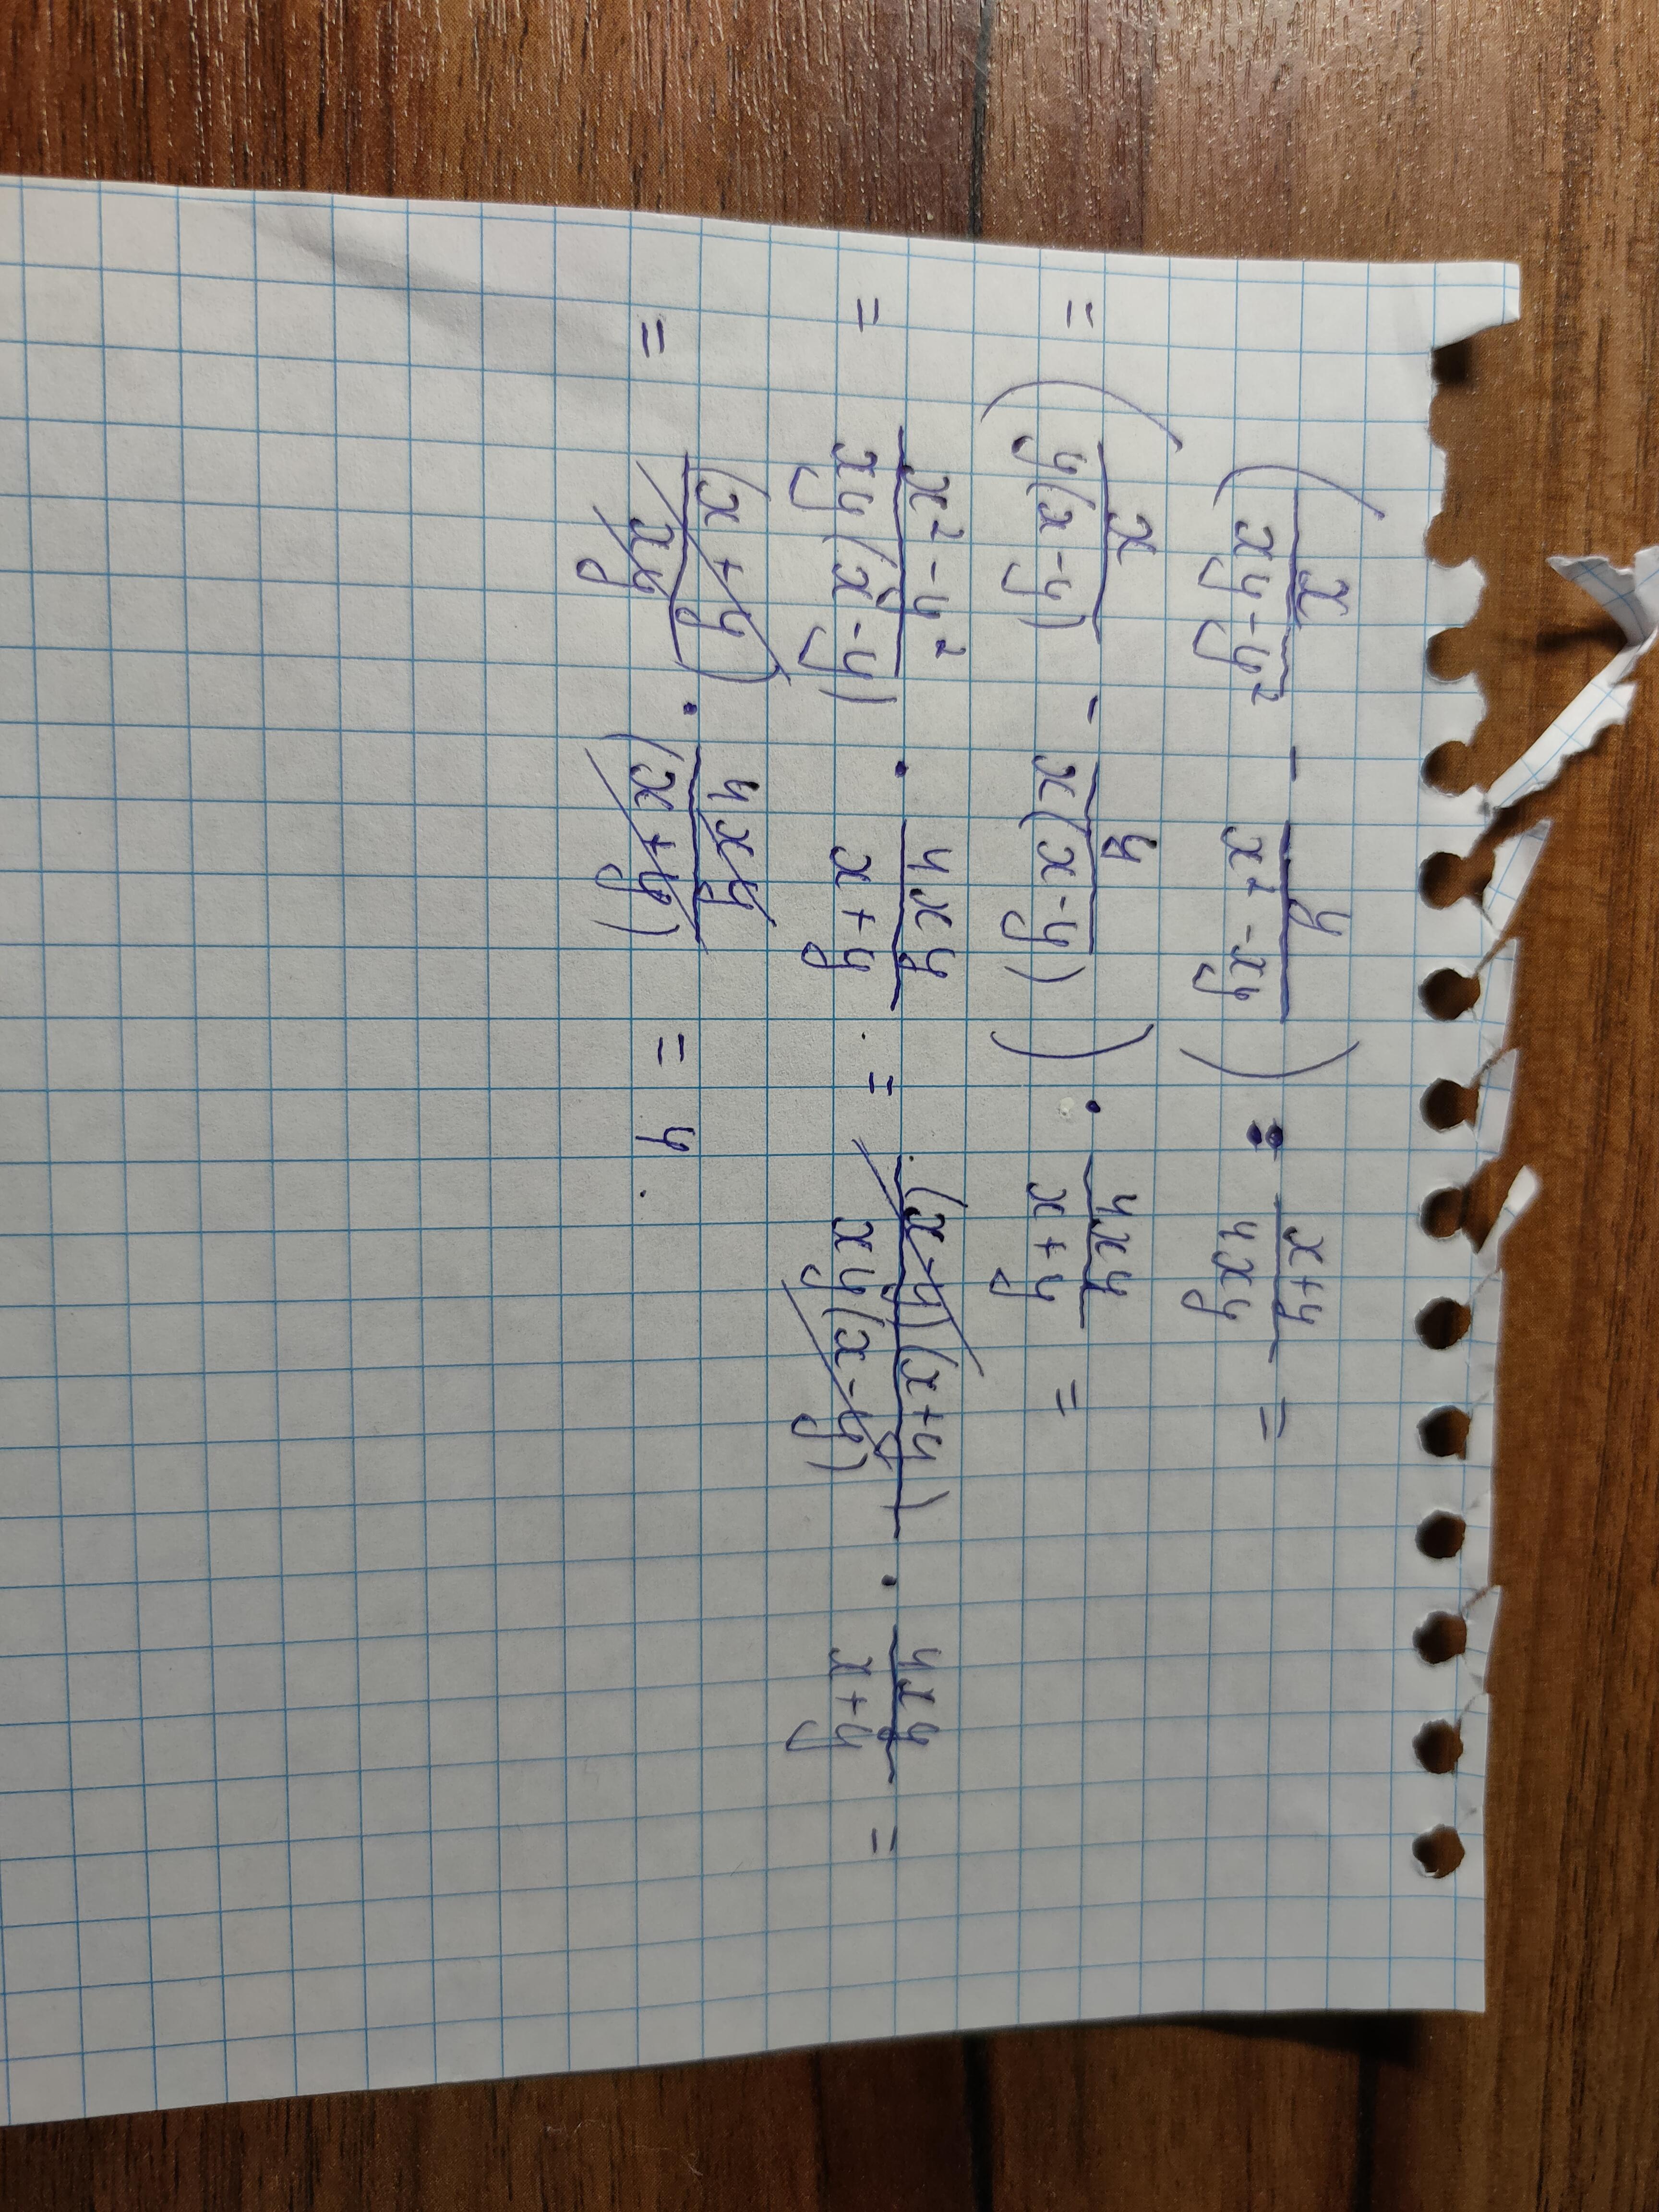 (x/(xy-y²) - y/(x²-xy)) : (x+y)/(4xy) =
= (x/(y(x-y)) - y/(x(x-y))) · 4xy/(x+y) =
= (x²-y²)/(xy(x-y)) · 4xy/(x+y) = ((x-y)(x+y))/(xy(x-y)) · 4xy/(x+y) =
= (x+y)/(xy) · 4xy/(x+y) = 4.